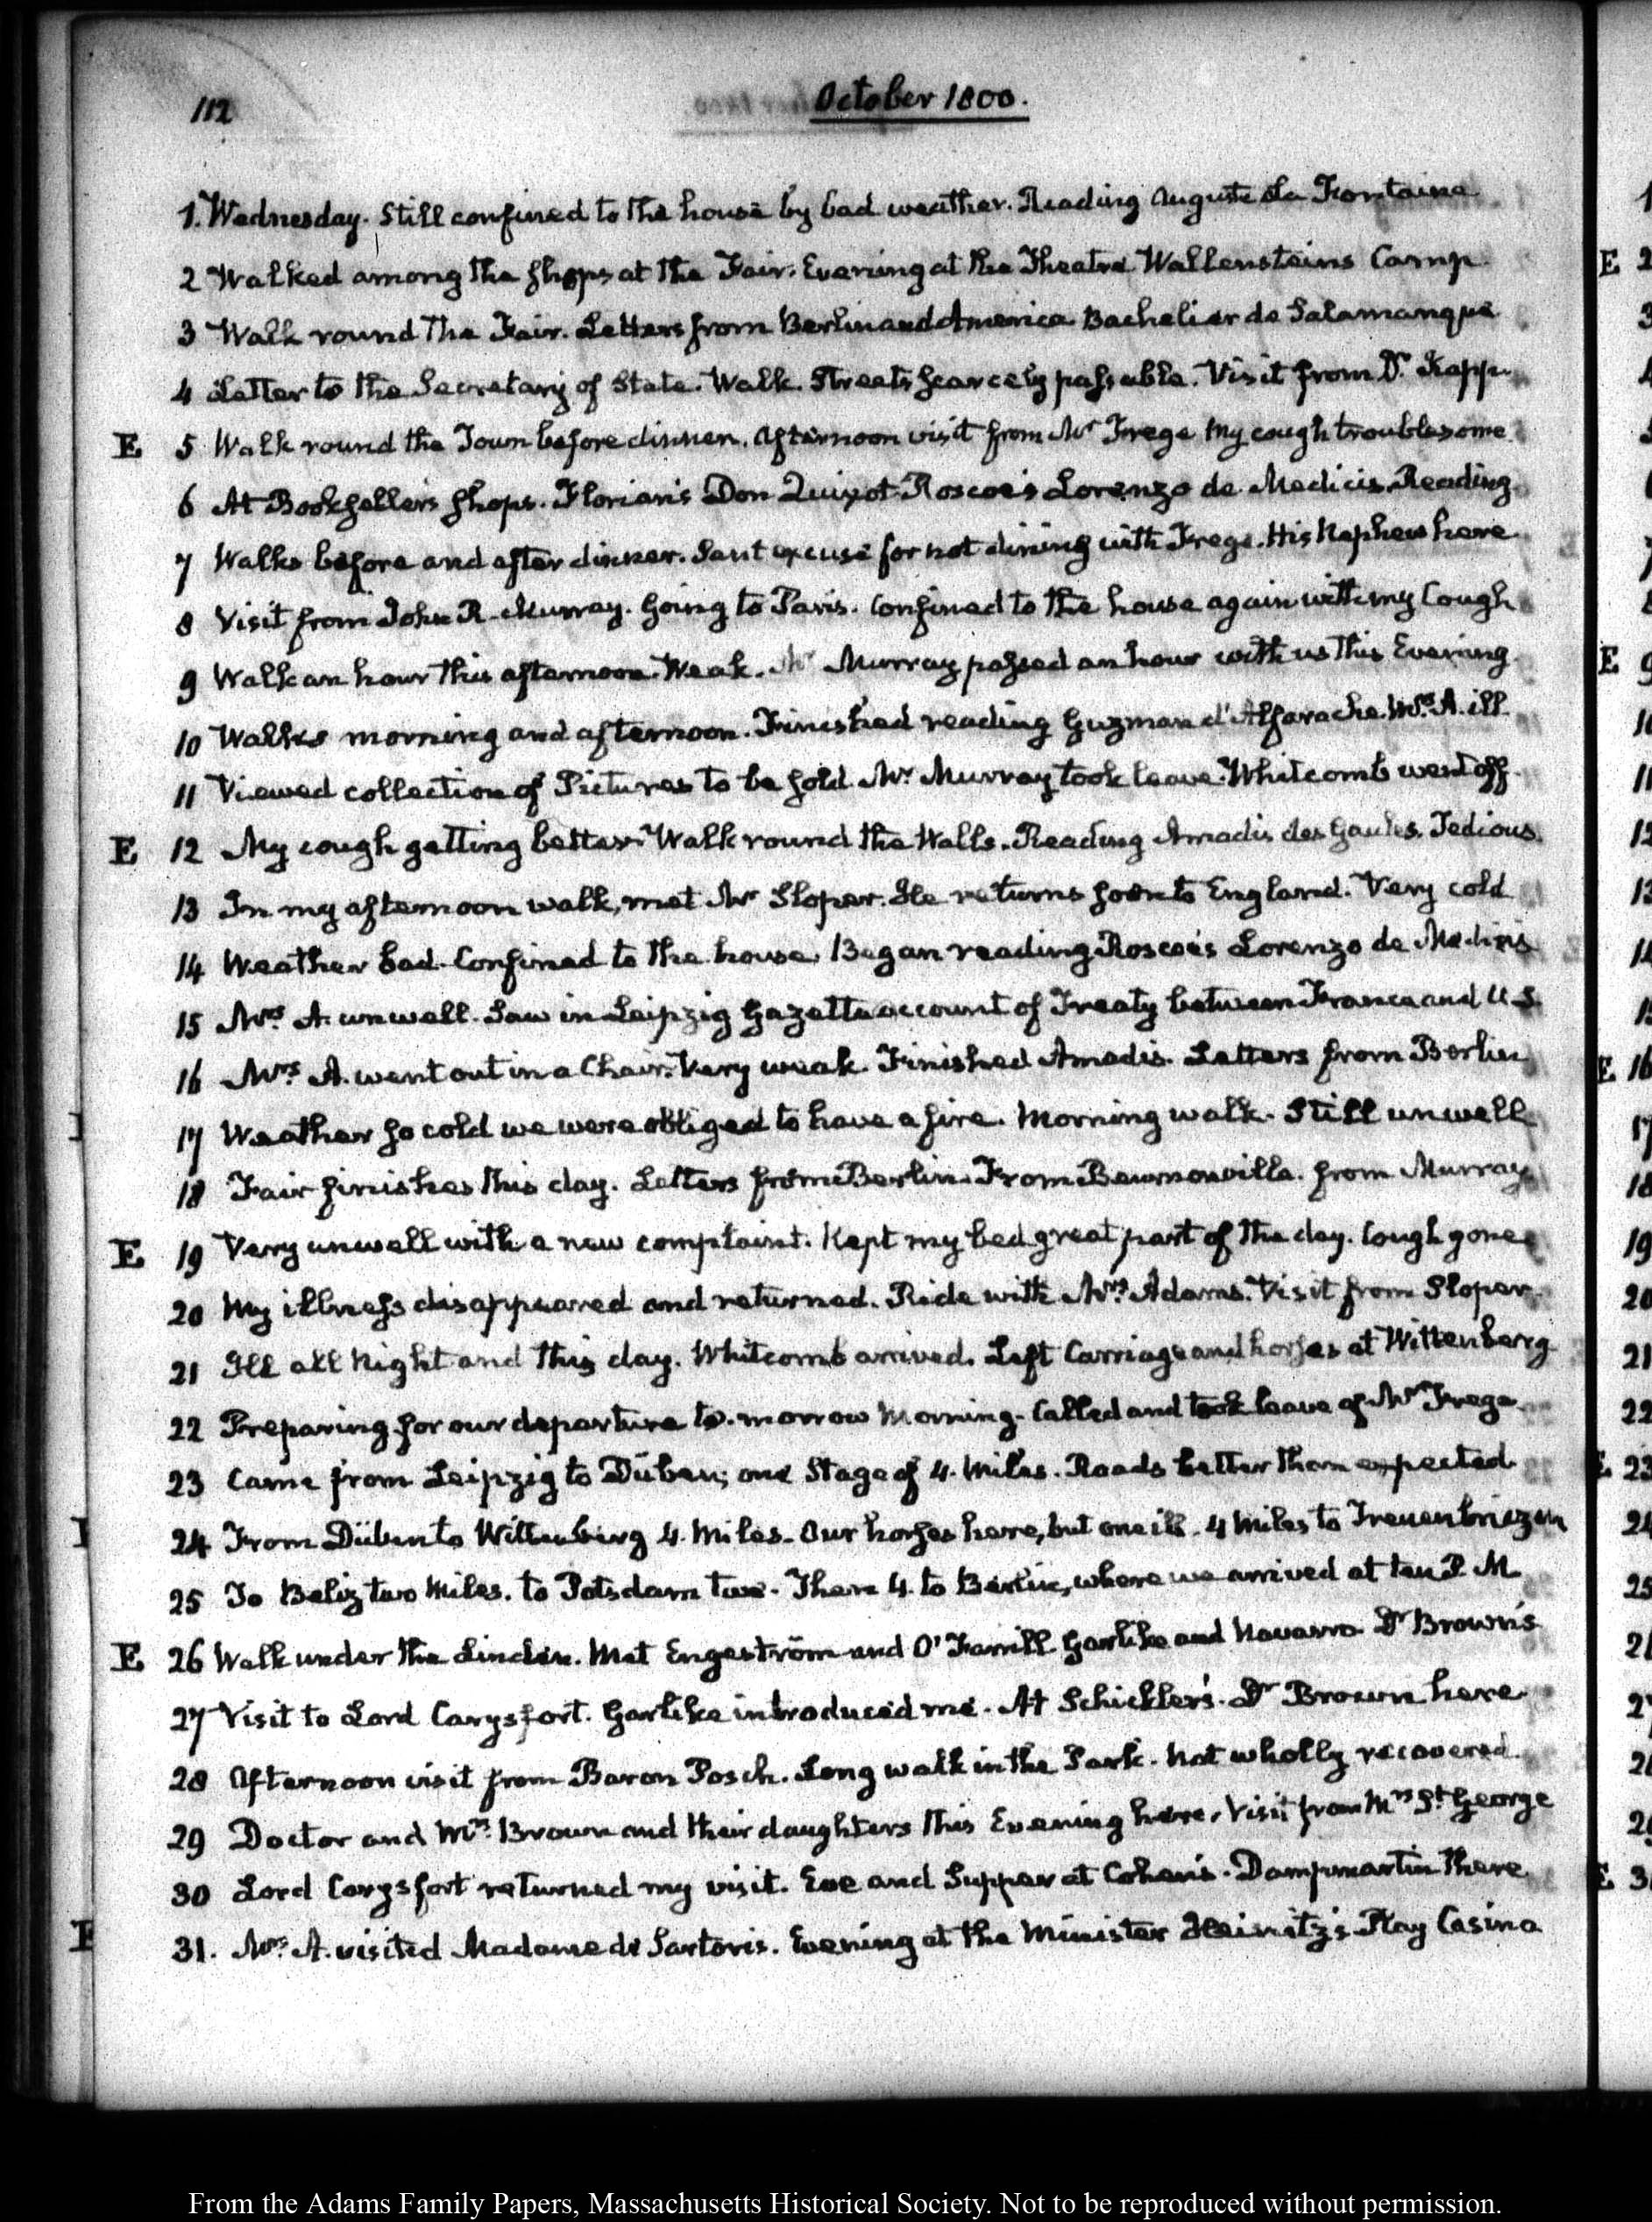 112
October 1800.
1. Wednesday. Still confined to the house by bad weather. Reading Auguste La Fontaine
2 Walked among the shops at the Fair. Evening at the Theatre Wallensteins Camp.
E
3 Walk round the Fair. Letters from Berlin and America. Bachelier de Salamanque
4 Letter to the Secretary of State. Walk. Streets scarcely passable. Visit from Dr. Kapp.
E 5 Walk round the Town before dinner. Afternoon visit from Mr Frege My cough troublesome
6 At Bookseller's shops. Florian's Don Quixot. Roscoe's Lorenzo de Medicis. Reading.
7 Walks before and after dinner. Sent excuse for not dining with Frege. His Nephew here
8 Visit from John R. Murray. Going to Paris. Confined to the house again with my Cough
9 Walk an hour this afternoon. Weak. Mr Murray passed an hour with us this Evening.
E
10 Walks morning and afternoon. Finished reading Guzman d'Alfarache. Mrs. A. ill.
11 Viewed collection of Pictures to be sold. Mr Murray took leave. Whitcomb went off.
E 12 My cough getting better. Walk round the Walls. Reading Amadis des Gaules. Tedious.
13 In my afternoon walk, met Mr Sloper. He returns soon to England. Very cold
14 Weather bad. Confined to the house. Began reading Roscoe's Lorenzo de Medicis
15 Mrs A. unwell. Saw in Leipzig Gazette account of Treaty between France and U.S.
16 Mrs A. went out in a Chair. Very weak. Finished Amadis. Letters from Berlin
E 16
17 Weather so cold we were obliged to have a fire. Morning walk. Still unwell
18 Fair finishes this day. Letters from Berlin. From Beurnonville. from Murray
E 19 Very unwell with a new complaint. Kept my bed great part of the day. Cough gone.
20 My illness disappeared and returned. Ride with Mrs Adams. Visit from Sloper.
21 Ill all Night and this day. Whitcomb arrived. Left Carriage and horses at Wittenberg.
22 Preparing for our departure to-morrow Morning. Called and took leave of Mr Frege
23 Came from Leipzig to Düben; one Stage of 4. Miles. Roads better than expected.
24 From Düben to Wittenberg 4. Miles. Our horses here, but one ill. 4 Miles to Treuenbriezen
25 To Beliz two Miles. to Potsdam two. Then 4. to Berlin, where we arrived at ten P.M.
E 26 Walk under the Linden. Met Engeström and O'Farrill Garlike and Navarro. Dr Brown's
27 Visit to Lord Carysfort. Garlike introduced me. At Schickler's. Dr Brown here
28 Afternoon visit from Baron Posch. Long walk in the Park. Not wholly recovered.
29 Doctor and Mrs Brown and their daughters this Evening here. Visit from Mrs St George
30 Lord Carysfort returned my visit. Eve and Supper at Cohen's. Dampmartin there
31. Mrs A. visited Madame de Sartoris. Evening at the Minister Heinitz's. Play Casino
From the Adams Family Papers, Massachusetts Historical Society. Not to be reproduced without permission.